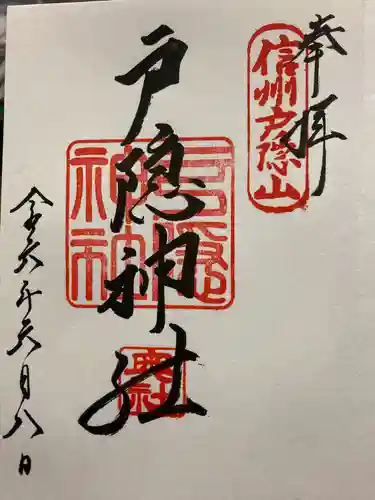 奉拝
信州戸隠山
戸隠神社
戸隠神社
奥社
令六年六月八日